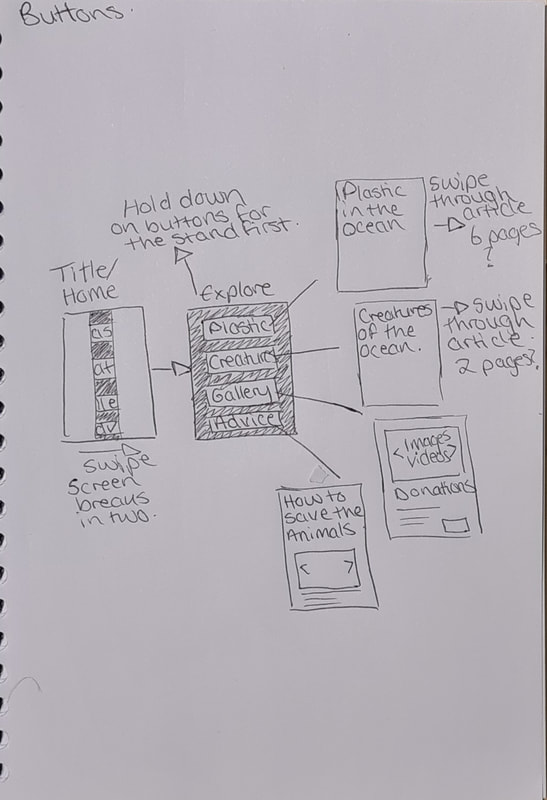 Buttons.
Hold down
on buttons for
the stand first.
Title/
Home
as
at
ic
av
swipe
screen
breaks
in two.
Explore
Plastic
Creature
Gallery
Advice
Plastic
in the
ocean
swipe
through
article
6 pages
?
Creatures
of the
ocean.
swipe
through
article.
2 pages?
< Images
Videos >
Donations
How to
save the
Animals
< >